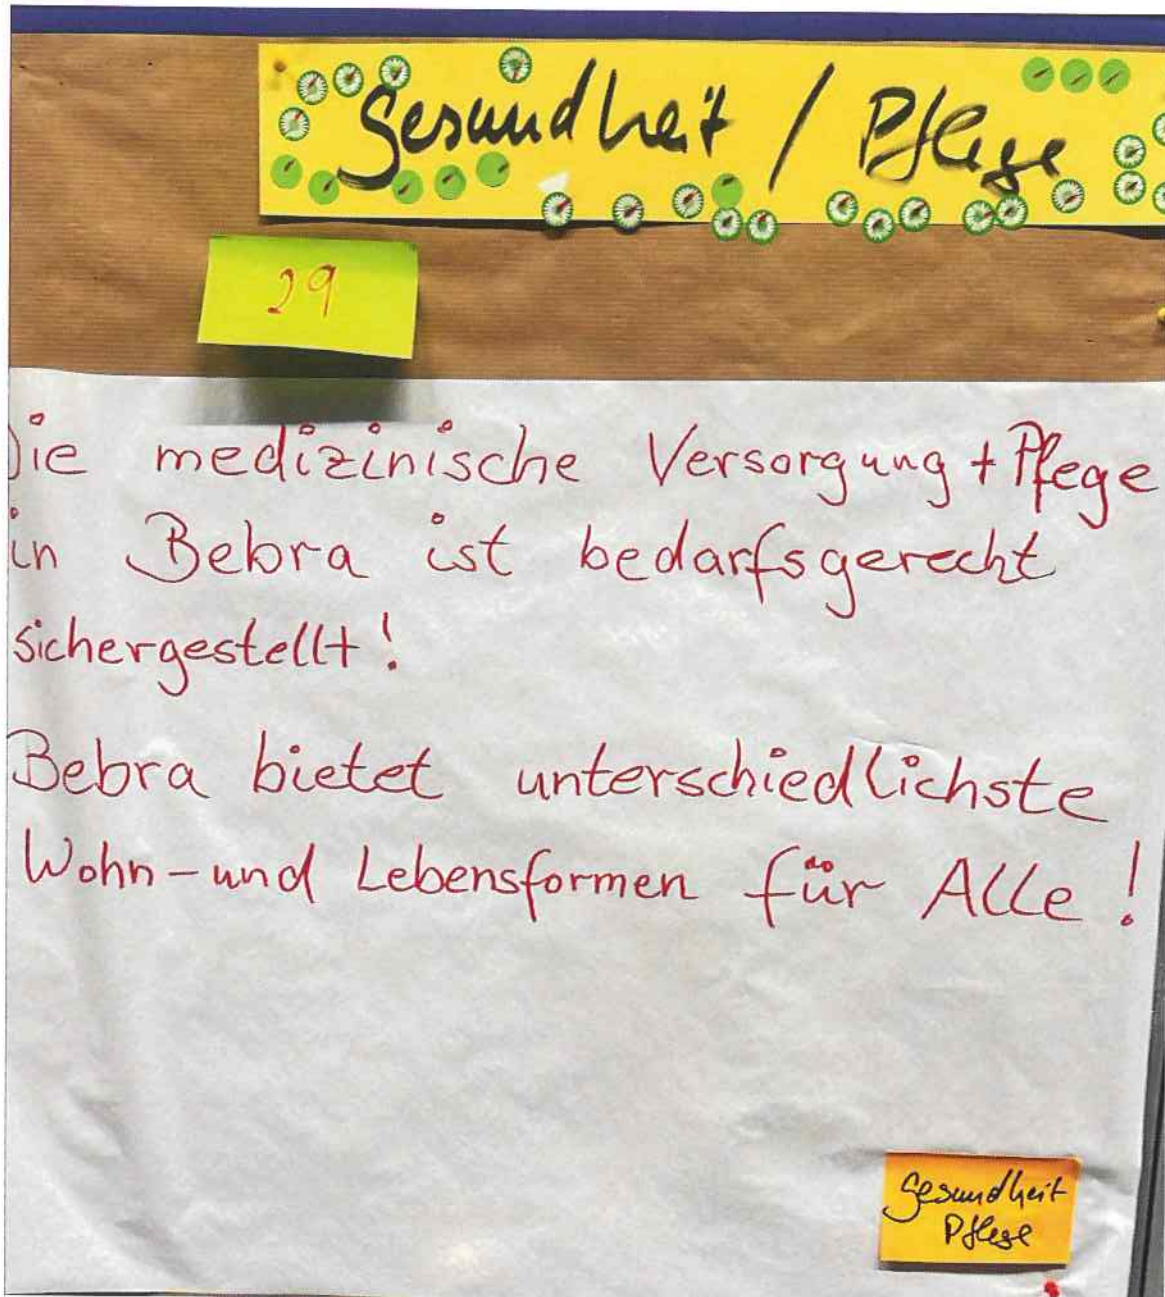 Gesundheit / Pflege
29
Die medizinische Versorgung + Pflege
in Bebra ist bedarfsgerecht
sichergestellt!
Bebra bietet unterschiedlichste
Wohn- und Lebensformen für Alle!
Gesundheit
Pflege